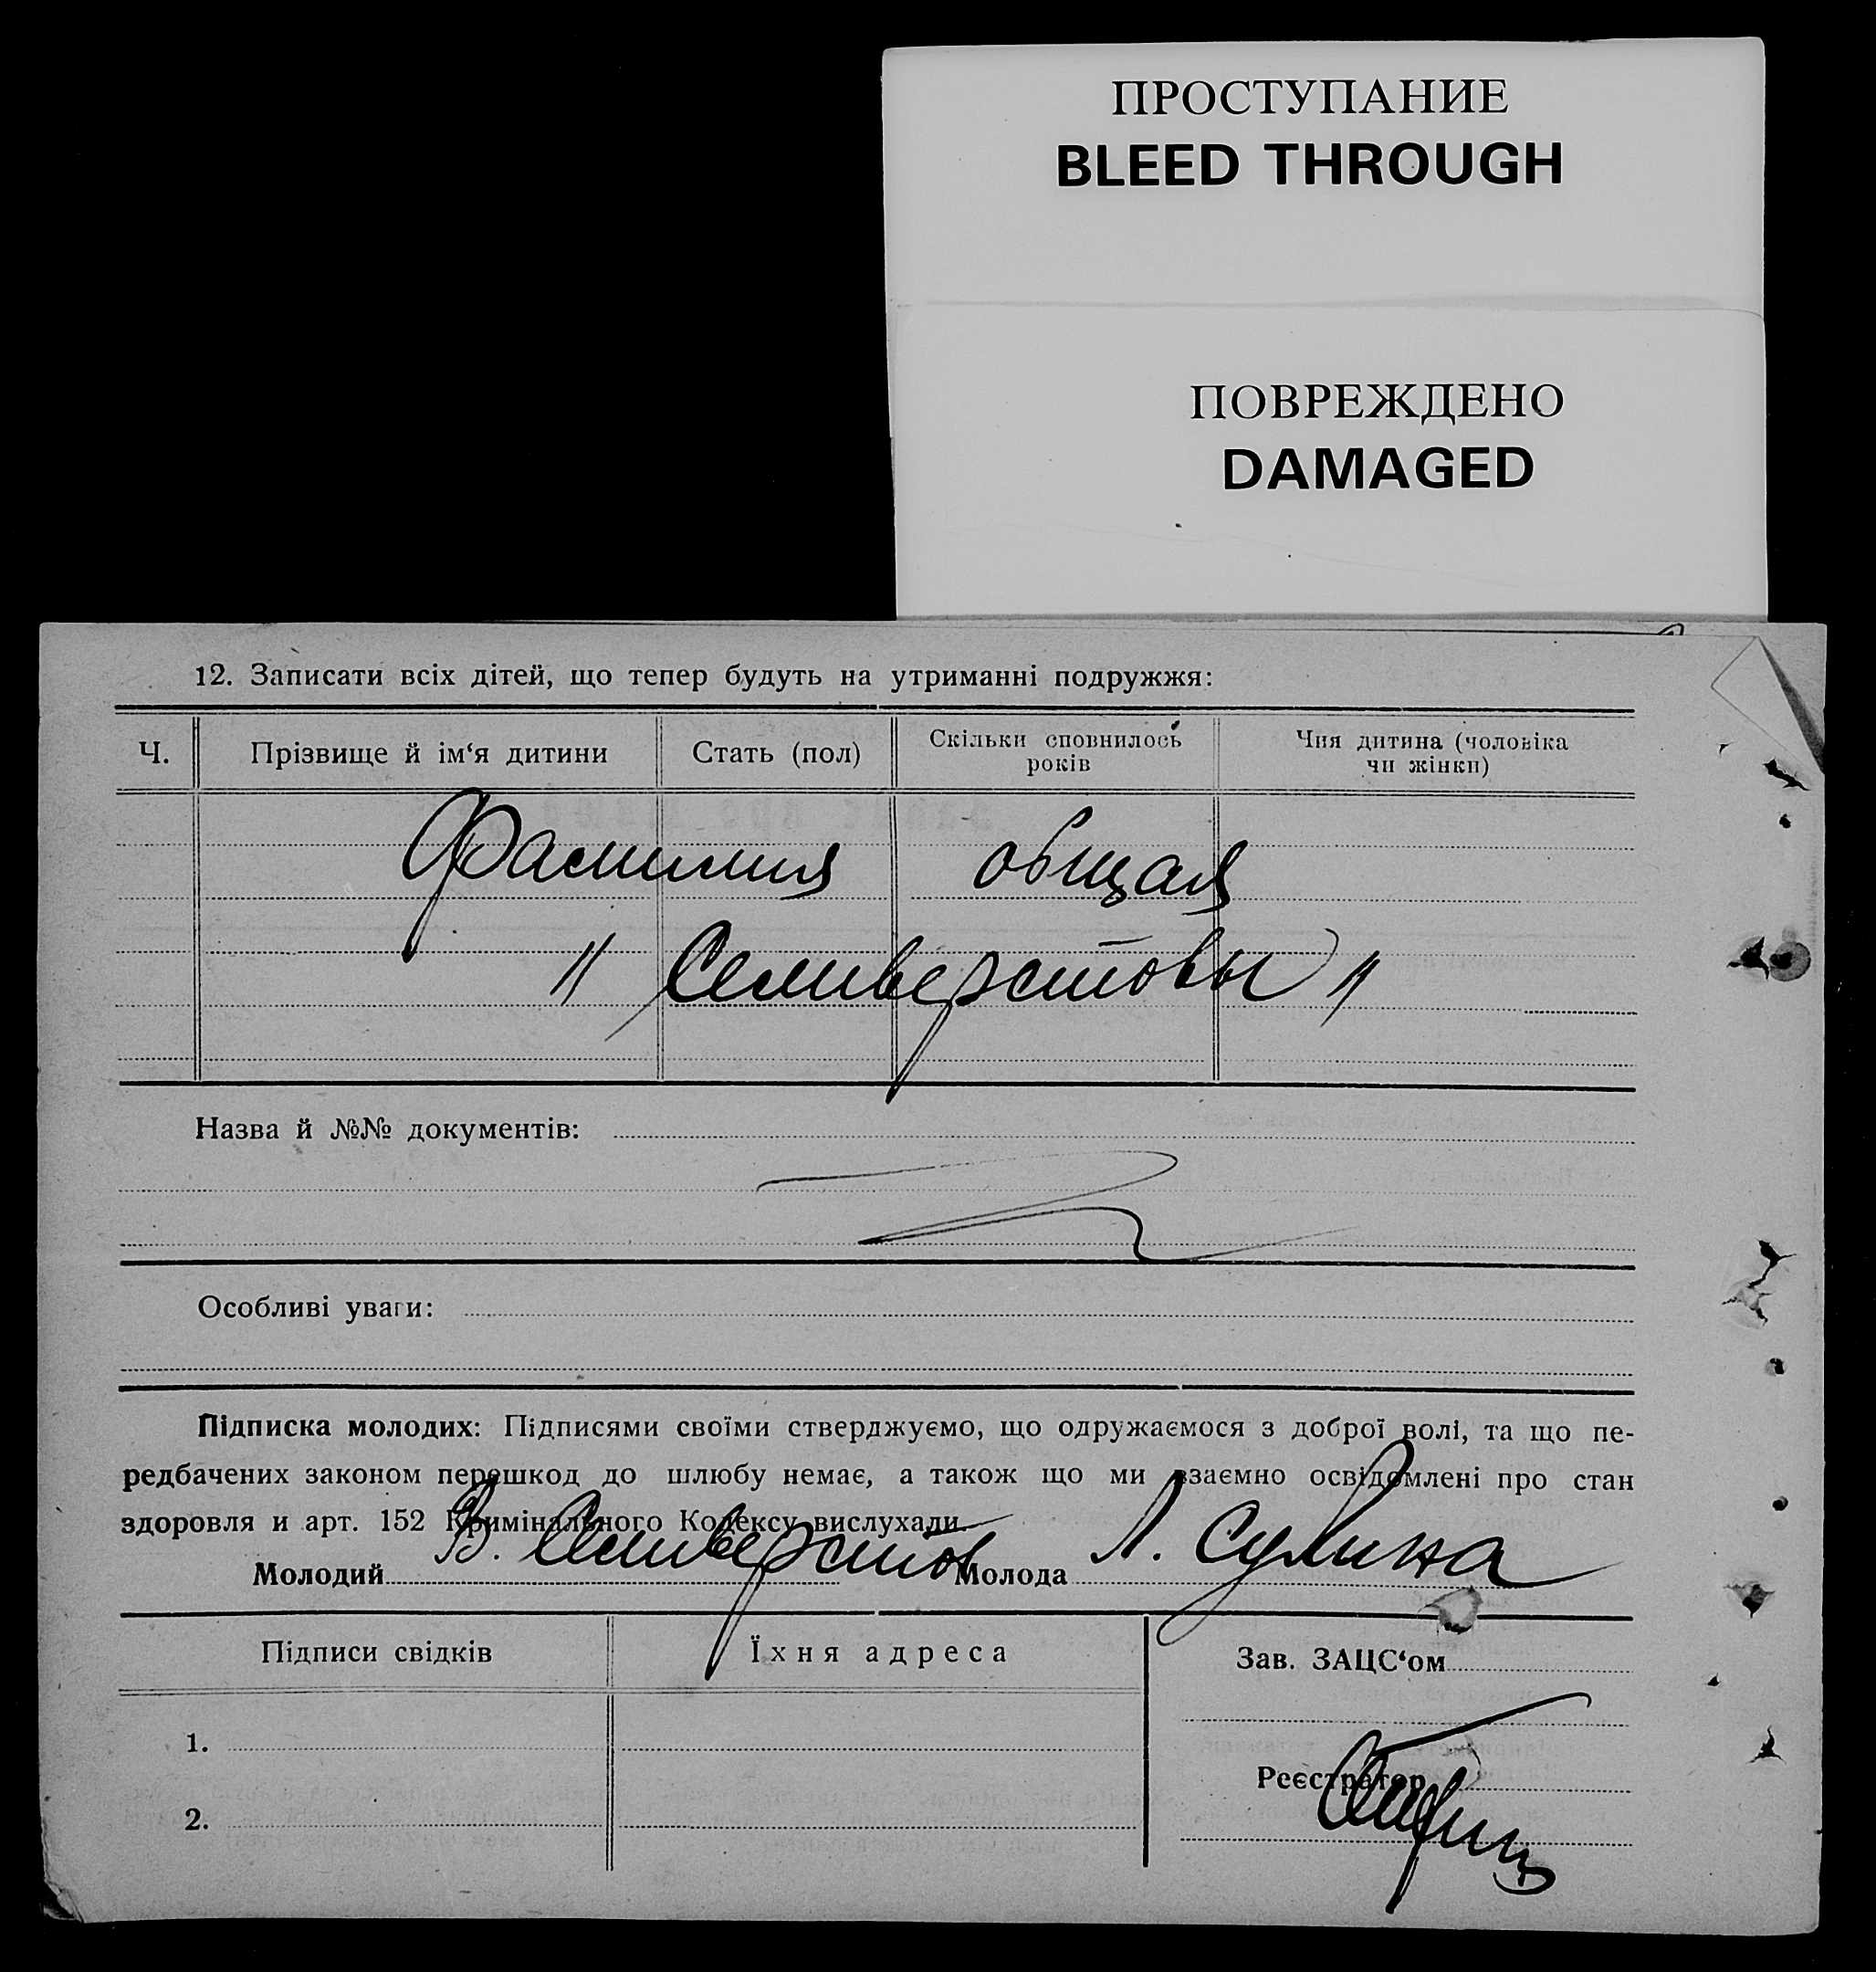 ПРОСТУПАНИЕ
BLEED THROUGH
ПОВРЕЖДЕНО
DAMAGED
12. Записати всіх дітей, що тепер будуть на утриманні подружжя:
Ч. Прізвище й ім‘я дитини Стать (пол) Скільки сповнилось років Чия дитина (чоловіка чи жінки)
Фамилия общая
" Селиверстовы "
Назва й №№ документів:
Особливі уваги:
Підписка молодих: Підписями своїми стверджуємо, що одружаємося з доброї волі, та що пе-
редбачених законом перешкод до шлюбу немає, а також що ми взаємно освідомлені про стан
здоровля и арт. 152 Кримінального Кодексу вислухали.
Молодий В. Селиверстов Молода Л. Сулина
Підписи свідків Їхня адреса Зав. ЗАЦС‘ом
1.
Реєстратор
2.